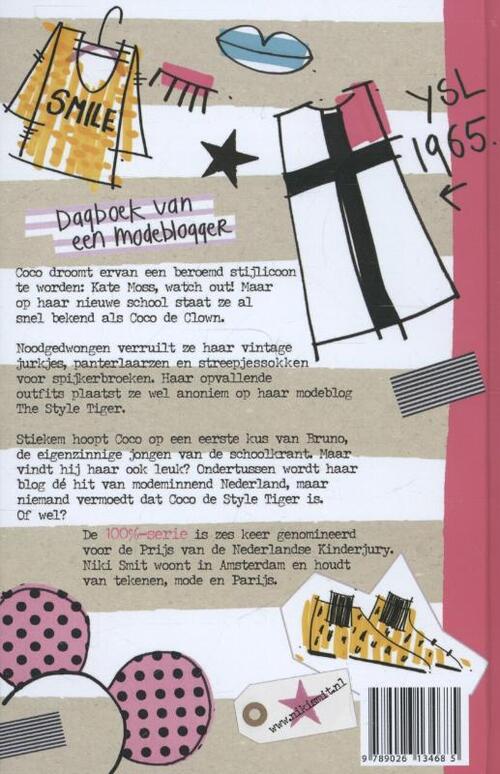 SMILE
YSL
1965.
Dagboek van
een modeblogger
Coco droomt ervan een beroemd stijlicoon
te worden: Kate Moss, watch out! Maar
op haar nieuwe school staat ze al
snel bekend als Coco de Clown.
Noodgedwongen verruilt ze haar vintage
jurkjes, panterlaarzen en streepjessokken
voor spijkerbroeken. Haar opvallende
outfits plaatst ze wel anoniem op haar modeblog
The Style Tiger.
Stiekem hoopt Coco op een eerste kus van Bruno,
de eigenzinnige jongen van de schoolkrant. Maar
vindt hij haar ook leuk? Ondertussen wordt haar
blog dé hit van modeminnend Nederland, maar
niemand vermoedt dat Coco de Style Tiger is.
Of wel?
De 100%-serie is zes keer genomineerd
voor de Prijs van de Nederlandse Kinderjury.
Niki Smit woont in Amsterdam en houdt
van tekenen, mode en Parijs.
www.nikismit.nl
9 789026 134685